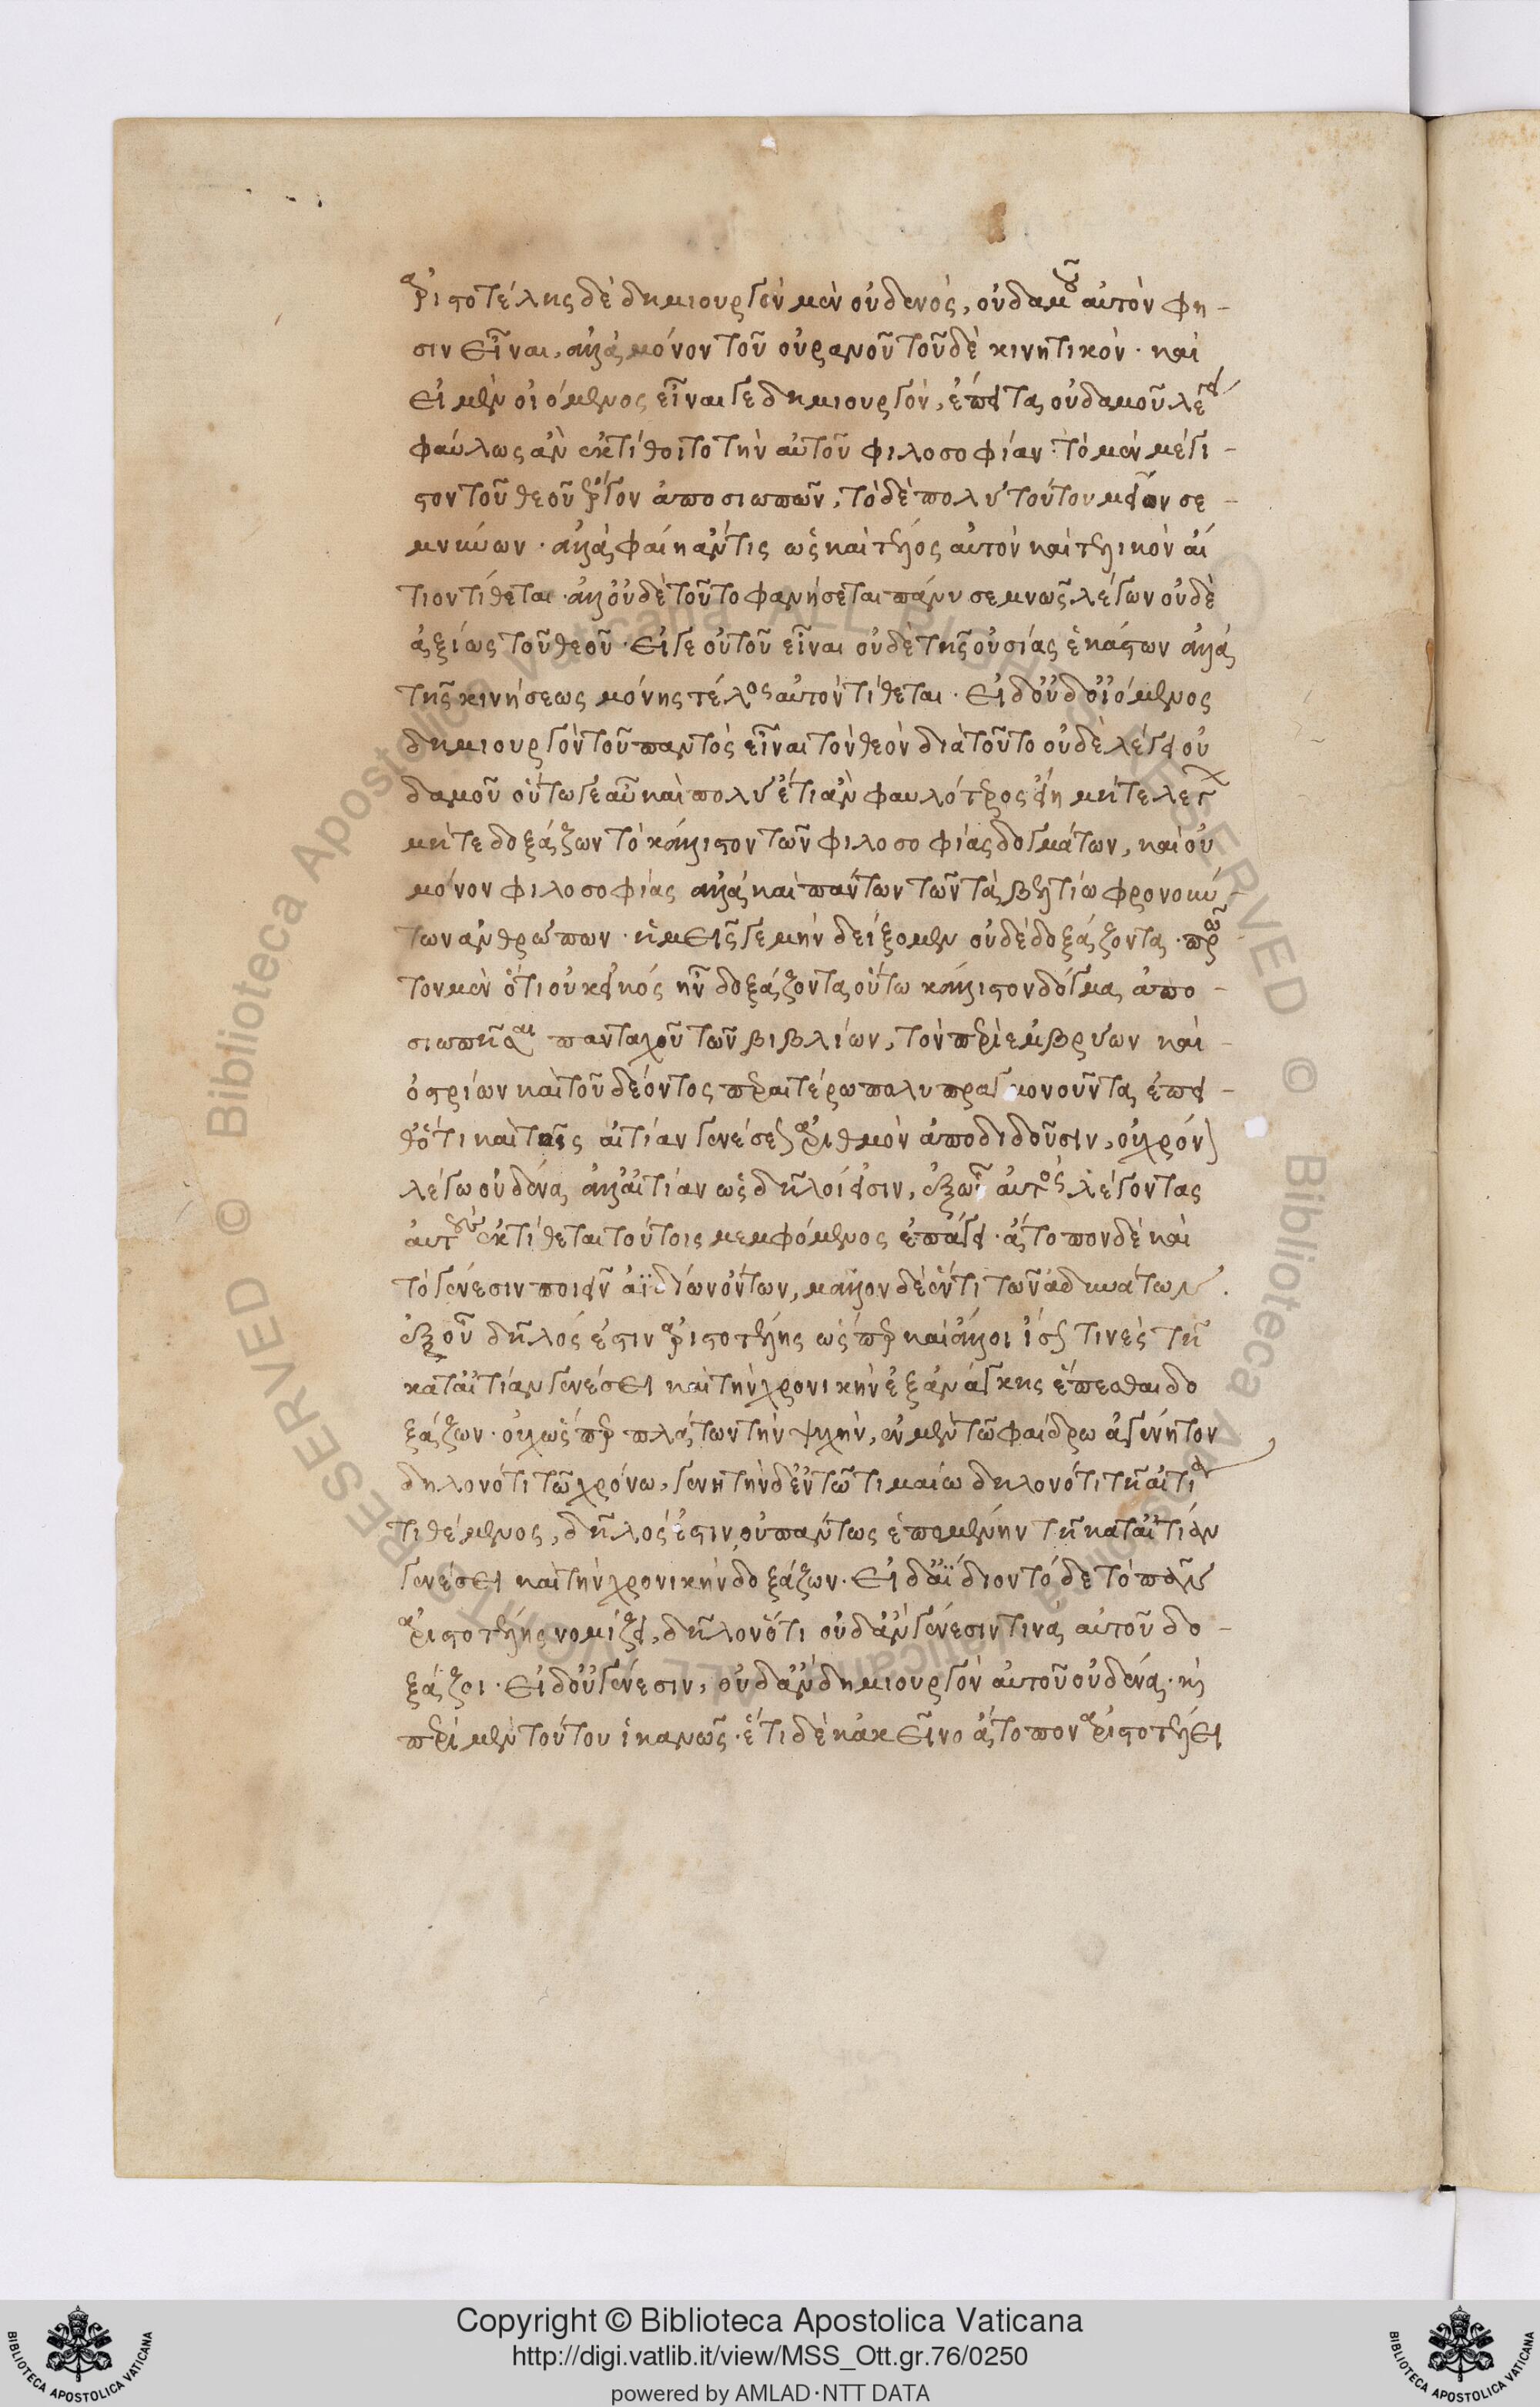 ἀριστοτέλης δὲ δημιουργὸν μὲν οὐδενὸς, οὐδαμοῦ αὐτὸν φη-
σιν εἶναι, ἀλλὰ μόνον τοῦ οὐρανοῦ τοῦδὲ κινητικὸν. καὶ
εἰ μὲν οἰόμενος εἶναι γε δημιουργόν, ἔπειτα οὐδαμοῦ λέγει
φαύλως ἂν ἐκτίθοιτο τὴν αὐτοῦ φιλοσοφίαν. τὸ μὲν μέγι-
στον τοῦ θεοῦ ἔργον ἀποσιωπῶν, τὸ δὲ πολὺ τούτου μεῖον σε-
μνύνων. ἀλλὰ φαίη ἄν τις ὡς καὶ τέλος αὐτὸν καὶ τελικὸν αἴ
τιον τίθεται. ἀλλ' οὐδὲ τοῦτο φανήσεται πάνυ σεμνῶς λέγων οὐδὲ
ἀξίως τοῦ θεοῦ. εἴ γε οὐ τοῦ εἶναι οὐδὲ τῆς οὐσίας ἑκάστων ἀλλὰ
τῆς κινήσεως μόνης τέλος αὐτὸν τίθεται. εἰ δ' οὐδ' οἰόμενος
δημιουργὸν τοῦ παντὸς εἶναι τὸν θεὸν διὰ τοῦτο οὐδὲ λέγει οὐ
δαμοῦ οὕτω γε αὖ καὶ πολὺ ἔτι ἂν φαυλότερος εἴη μήτε λέγων
μήτε δοξάζων τὸ κάλλιστον τῶν φιλοσοφίας δογμάτων, καὶ οὐ
μόνον φιλοσοφίας ἀλλὰ καὶ πάντων τῶν τὰ βελτίω φρονούν-
των ἀνθρώπων. ἡμεῖς γε μὴν δείξομεν οὐδὲ δοξάζοντα. πρῶ
τον μὲν ὅτι οὐκ εἰκός ἦν δοξάζοντα οὕτω κάλλιστον δόγμα ἀπο-
σιωπῆσαι πανταχοῦ τῶν βιβλίων, τὸν περὶ ἐμβρύων καὶ
ὀστρίων καὶ τοῦ δέοντος περαιτέρω πολυπραγμονοῦντα, ἔπει-
θ' ὅτι καὶ τοῖς αἰτίαν γενέσεως ἀριθμὸν ἀποδιδοῦσιν, οὐ χρόνου
λέγω οὐδένα ἀλλ' αἰτίαν ὡς δῆλοί εἰσιν, ἐξ ὧν αὐτὸς λέγοντας
αὐτοὺς ἐκτίθεται τούτοις μεμφόμενος ἐπάγει. ἄτοπον δὲ καὶ
τὸ γένεσιν ποιεῖν ἀϊδίων ὄντων, μᾶλλον δὲ ἕν τι τῶν ἀδυνάτων.
ἐξ οὗ δῆλός ἐστιν ἀριστοτέλης ὥσπερ καὶ ἄλλοι ἴσως τινὲς τῇ
κατ' αἰτίαν γενέσει καὶ τὴν χρονικὴν ἐξ ἀνάγκης ἕπεσθαι δο
ξάζων. οὐχ ὥσπερ πλάτων τὴν ψυχὴν, ἐν μὲν τῶ φαίδρω ἀγένητον
δηλονότι τῶ χρόνω, γενητὴν δ' ἐν τῶ τιμαίω δηλονότι τῇ αἰτία
τιθέμενος, δῆλός ἐστιν οὐ πάντως ἑπομένην τῇ κατ' αἰτίαν
γενέσει καὶ τὴν χρονικὴν δοξάζων. εἰ δ' ἀΐδιον τόδε τὸ πᾶν
ἀριστοτέλης νομίζει, δῆλον ὅτι οὐδ' ἂν γένεσιν τινὰ αὐτοῦ δο-
ξάζοι. εἰ δ' οὐ γένεσιν, οὐδ' ἂν δημιουργὸν αὐτοῦ οὐδένα. καὶ
περὶ μὲν τούτου ἱκανῶς. ἔτι δὲ κἀκεῖνο ἄτοπον ἀριστοτέλει
Copyright © Biblioteca Apostolica Vaticana
http://digi.vatlib.it/view/MSS_Ott.gr.76/0250
powered by AMLAD·NTT DATA